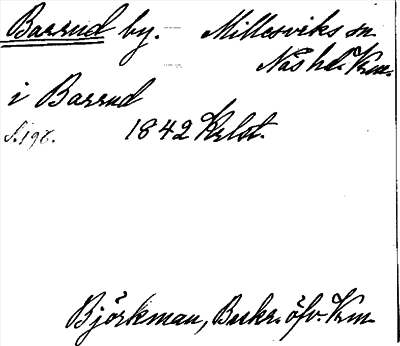 Barrud by. Millesviks sn
Näs hd. Vrm.
i Barrud 1842 Krlbt.
s. 198.
Björkman, Beskr. öfv. Vrm.